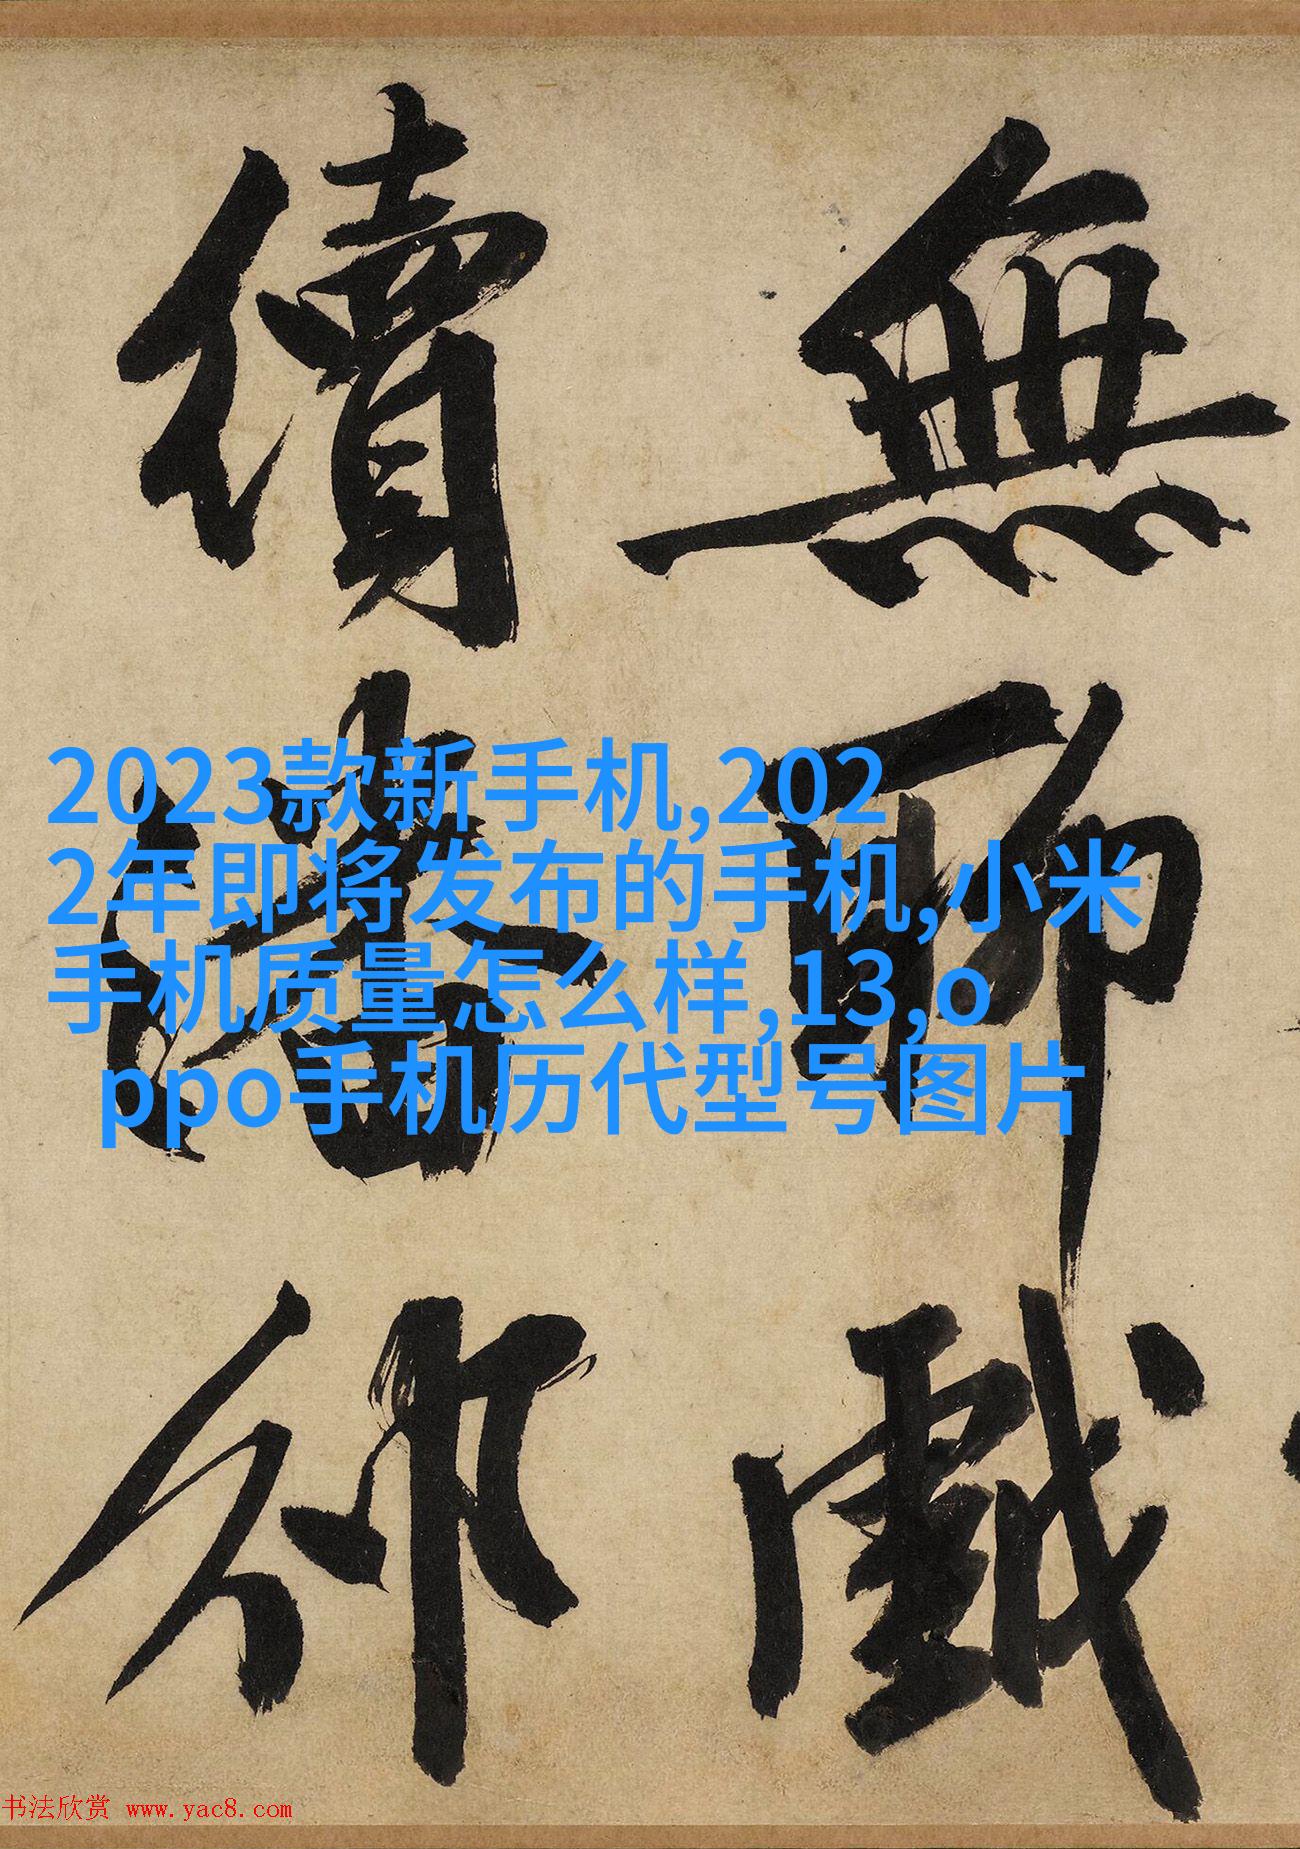 無聊戲
續潘邠
2023款新手机,202
2年即将发布的手机,小米
手机质量怎么样,13,o
ppo手机历代型号图片
书法欣赏 www.yac8.com